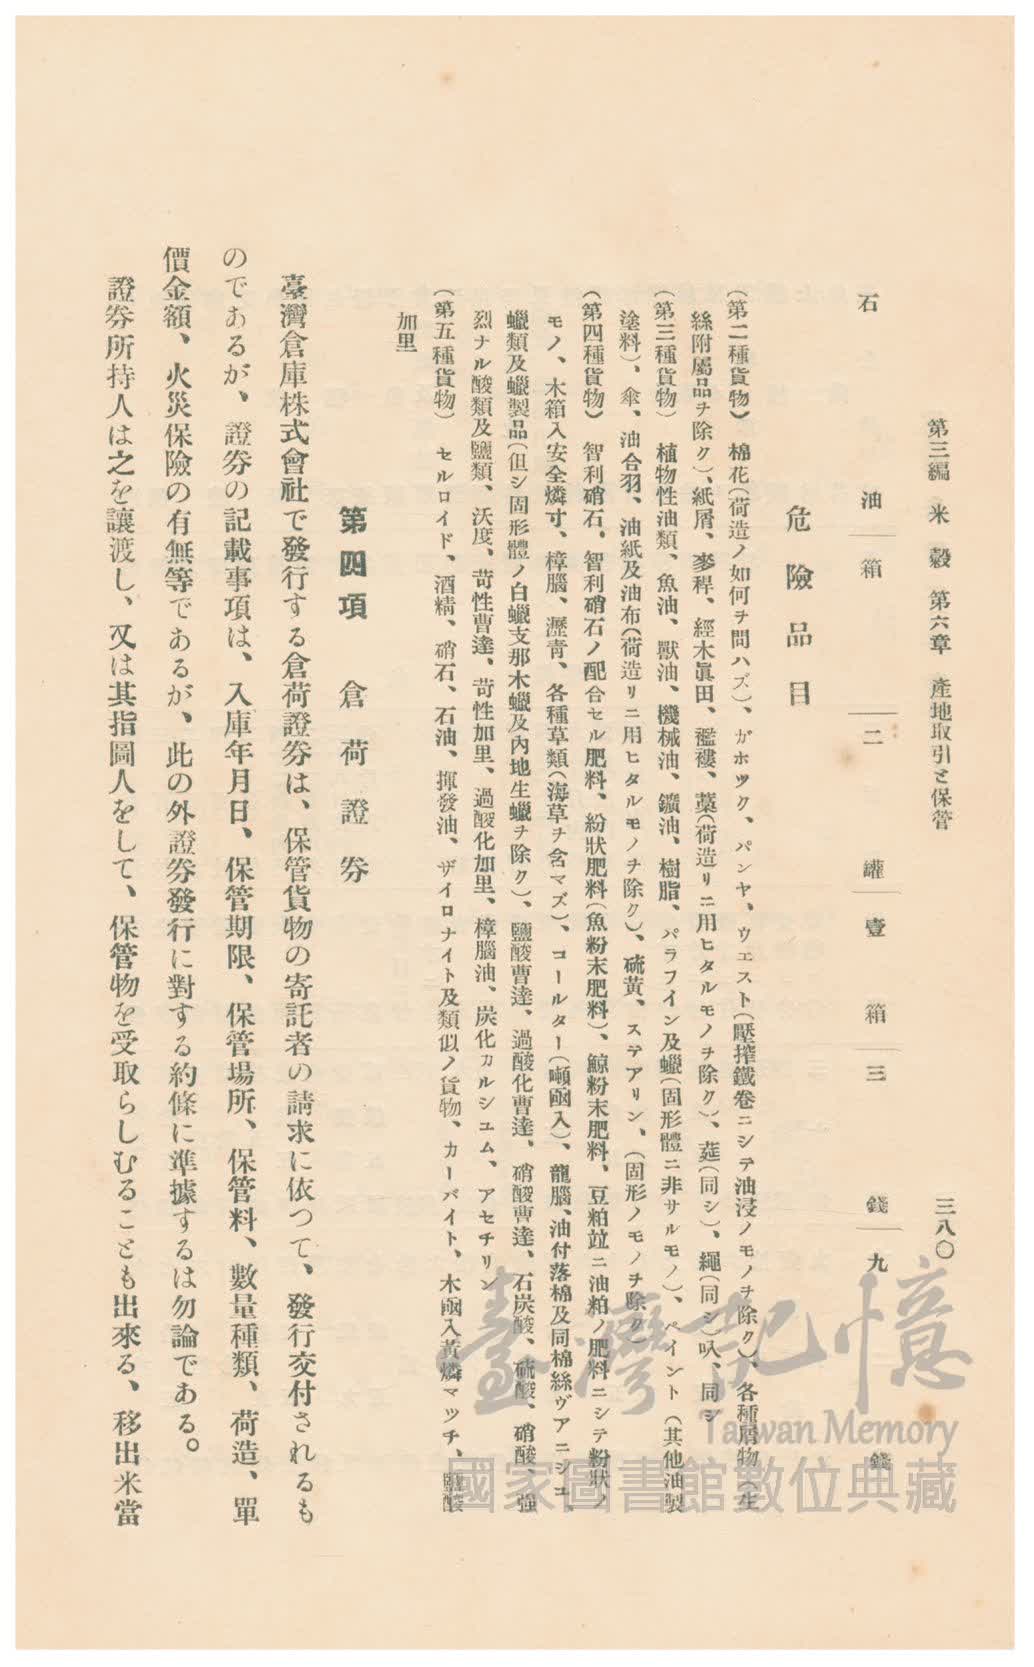 第三編　米　穀　第六章　產地取引と保管　三八〇
石　油　箱　二　罐　壹　箱　三　錢　九　錢
危險品目
(第二種貨物)　棉花(荷造ノ如何ヲ問ハズ)、ガホツク、パンヤ、ウエスト(壓搾鐵卷ニシテ油浸ノモノヲ除ク)、各種屑物(生
絲附屬品ヲ除ク)、紙屑、麥稈、經木眞田、襤褸、藁(荷造リニ用ヒタルモノヲ除ク)、莚(同シ)、繩(同シ)叺、同シ
(第三種貨物)　植物性油類、魚油、獸油、機械油、鑛油、樹脂、パラフイン及蠟(固形體ニ非サルモノ)、ペイント(其他油製
塗料)、傘、油合羽、油紙及油布(荷造リニ用ヒタルモノヲ除ク)、硫黃、ステアリン、(固形ノモノヲ除ク)
(第四種貨物)　智利硝石、智利硝石ノ配合セル肥料、紛狀肥料(魚粉末肥料)、鯨粉末肥料、豆粕竝ニ油粕ノ肥料ニシテ粉狀ノ
モノ、木箱入安全燐寸、樟腦、瀝靑、各種草類(海草ヲ含マズ)、コールター(噸凾入)、龍腦、油付落棉及同棉絲ヴアニシユ、
蠟類及蠟製品(但シ固形體ノ白蠟支那木蠟及內地生蠟ヲ除ク)、鹽酸曹達、過酸化曹達、硝酸曹達、石炭酸、硫酸、硝酸、强
烈ナル酸類及鹽類、沃度、苛性曹達、苛性加里、過酸化加里、樟腦油、炭化カルシユム、アセチリン
(第五種貨物)　セルロイド、酒精、硝石、石油、揮發油、ザイロナイト及類似ノ貨物、カーバイト、木凾入黃燐マツチ、鹽酸
加里
第四項　倉荷證券
臺灣倉庫株式會社で發行する倉荷證券は、保管貨物の寄託者の請求に依つて、發行交付されるも
のであるが、證券の記載事項は、入庫年月日、保管期限、保管場所、保管料、數量種類、荷造、單
價金額、火災保險の有無等であるが、此の外證券發行に對する約條に準據するは勿論である。
證券所持人は之を讓渡し、又は其指圖人をして、保管物を受取らしむることも出來る、移出米當
臺灣記憶
Taiwan Memory
國家圖書館數位典藏